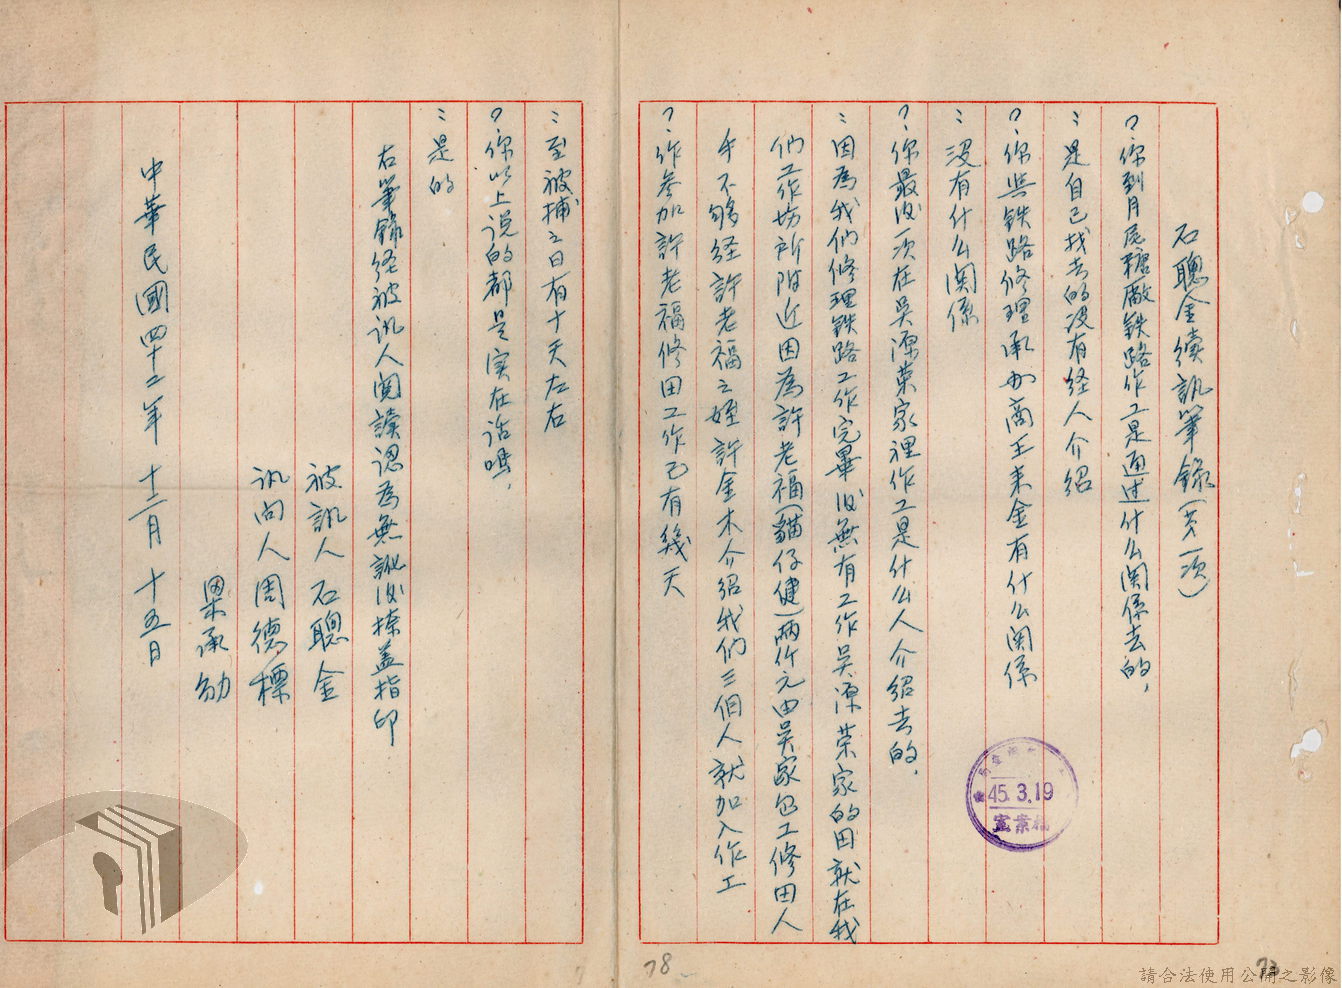 石聰金續訊筆錄(第一次)
?.你到月尾糖廠铁路作工是通过什么関係去的,
:是自己找去的没有经人介紹
?.你與铁路修理承办商王来金有什么関係
:没有什么関係
?.你最後一次在吴源荣家裡作工是什么人介紹去的,
:因為我们修理铁路工作完畢後無有工作吴源荣家的田就在我
们工作場所附近因為許老福(貓仔健)両仟元由吴家包工修田人
手不够经許老福之姪許金木介紹我们三個人就加入作工
?.你参加許老福修田工作已有幾天
:至被捕之日有十天左右
?.你以上说的都是实在话嗎,
:是的
右筆錄经被讯人閲讀認為無訛後捺盖指印
被訊人石聰金
讯问人周德標
梁承勋
中華民國四十二年十二月十五日
45.3.19
檔案室
78
73
請合法使用公開之影像